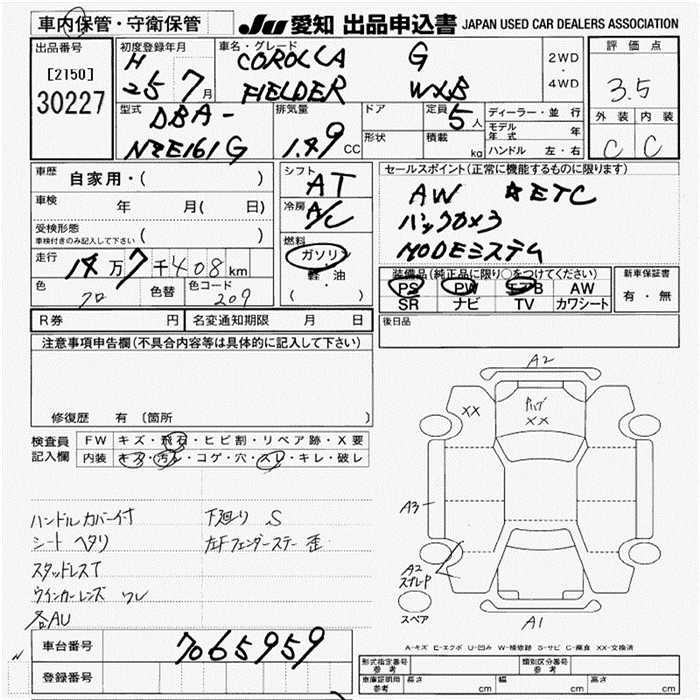 車内保管・守衛保管
JU 愛知 出品申込書 JAPAN USED CAR DEALERS ASSOCIATION
出品番号
[2150]
30227
初度登録年月
H
25 7 月
車名・グレード
COROLLA G
FIELDER WXB
2WD
・
4WD
評価点
3.5
外装 内装
C C
型式
DBA-
NZE161G
排気量
1.49 CC
ドア
形状
定員 5 人
積載 kg
ディーラー・並行
モデル年式 年
ハンドル 左・右
車歴 自家用・( )
車検 年 月( 日)
受検形態
車検付きのみ記入して下さい ( )
走行 14万7千408km
色 クロ 色替 色コード 209
シフト AT
冷房 A/C
燃料
ガソリン
軽・油
( )
セールスポイント(正常に機能するものに限ります)
AW ☆ETC
バックカメラ
MODEミステム
装備品(純正品に限り○をつけてください)
PS PW エアB AW
SR ナビ TV カワシート
新車保証書
有・無
R券 円 名変通知期限 月 日
後日品
注意事項申告欄(不具合内容等は具体的に記入して下さい)
修復歴 有 〔箇所 〕
検査員
記入欄
FW キズ・飛石・ヒビ割・リペア跡・X要
内装 キズ・汚レ・コゲ・穴・スレ・キレ・破レ
ハンドルカバー付 下廻り S
シート ヘタリ 左Fフェンダーステー 歪
スタッドレスT
ウインカーレンズ ワレ
各AU
A2
XX
XX
A3
A2
A1
スペア
A-キズ E-エクボ U-凹み W-補修跡 S-サビ C-腐食 XX-交換済
車台番号 7065959
登録番号
形式指定番号
参考
類別区分番号
参考
車庫証明用
参考
長さ cm 幅 cm 高さ cm